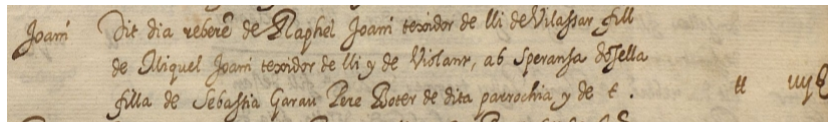 Joani Dit dia rebere de Raphel Joani texidor de lli de Vilassar fill
de Miquel Joani texidor de lli y de Violant, ab Speransa dosella
filla de Sebastia Garau Pere Boter de dita parrochia y de t .